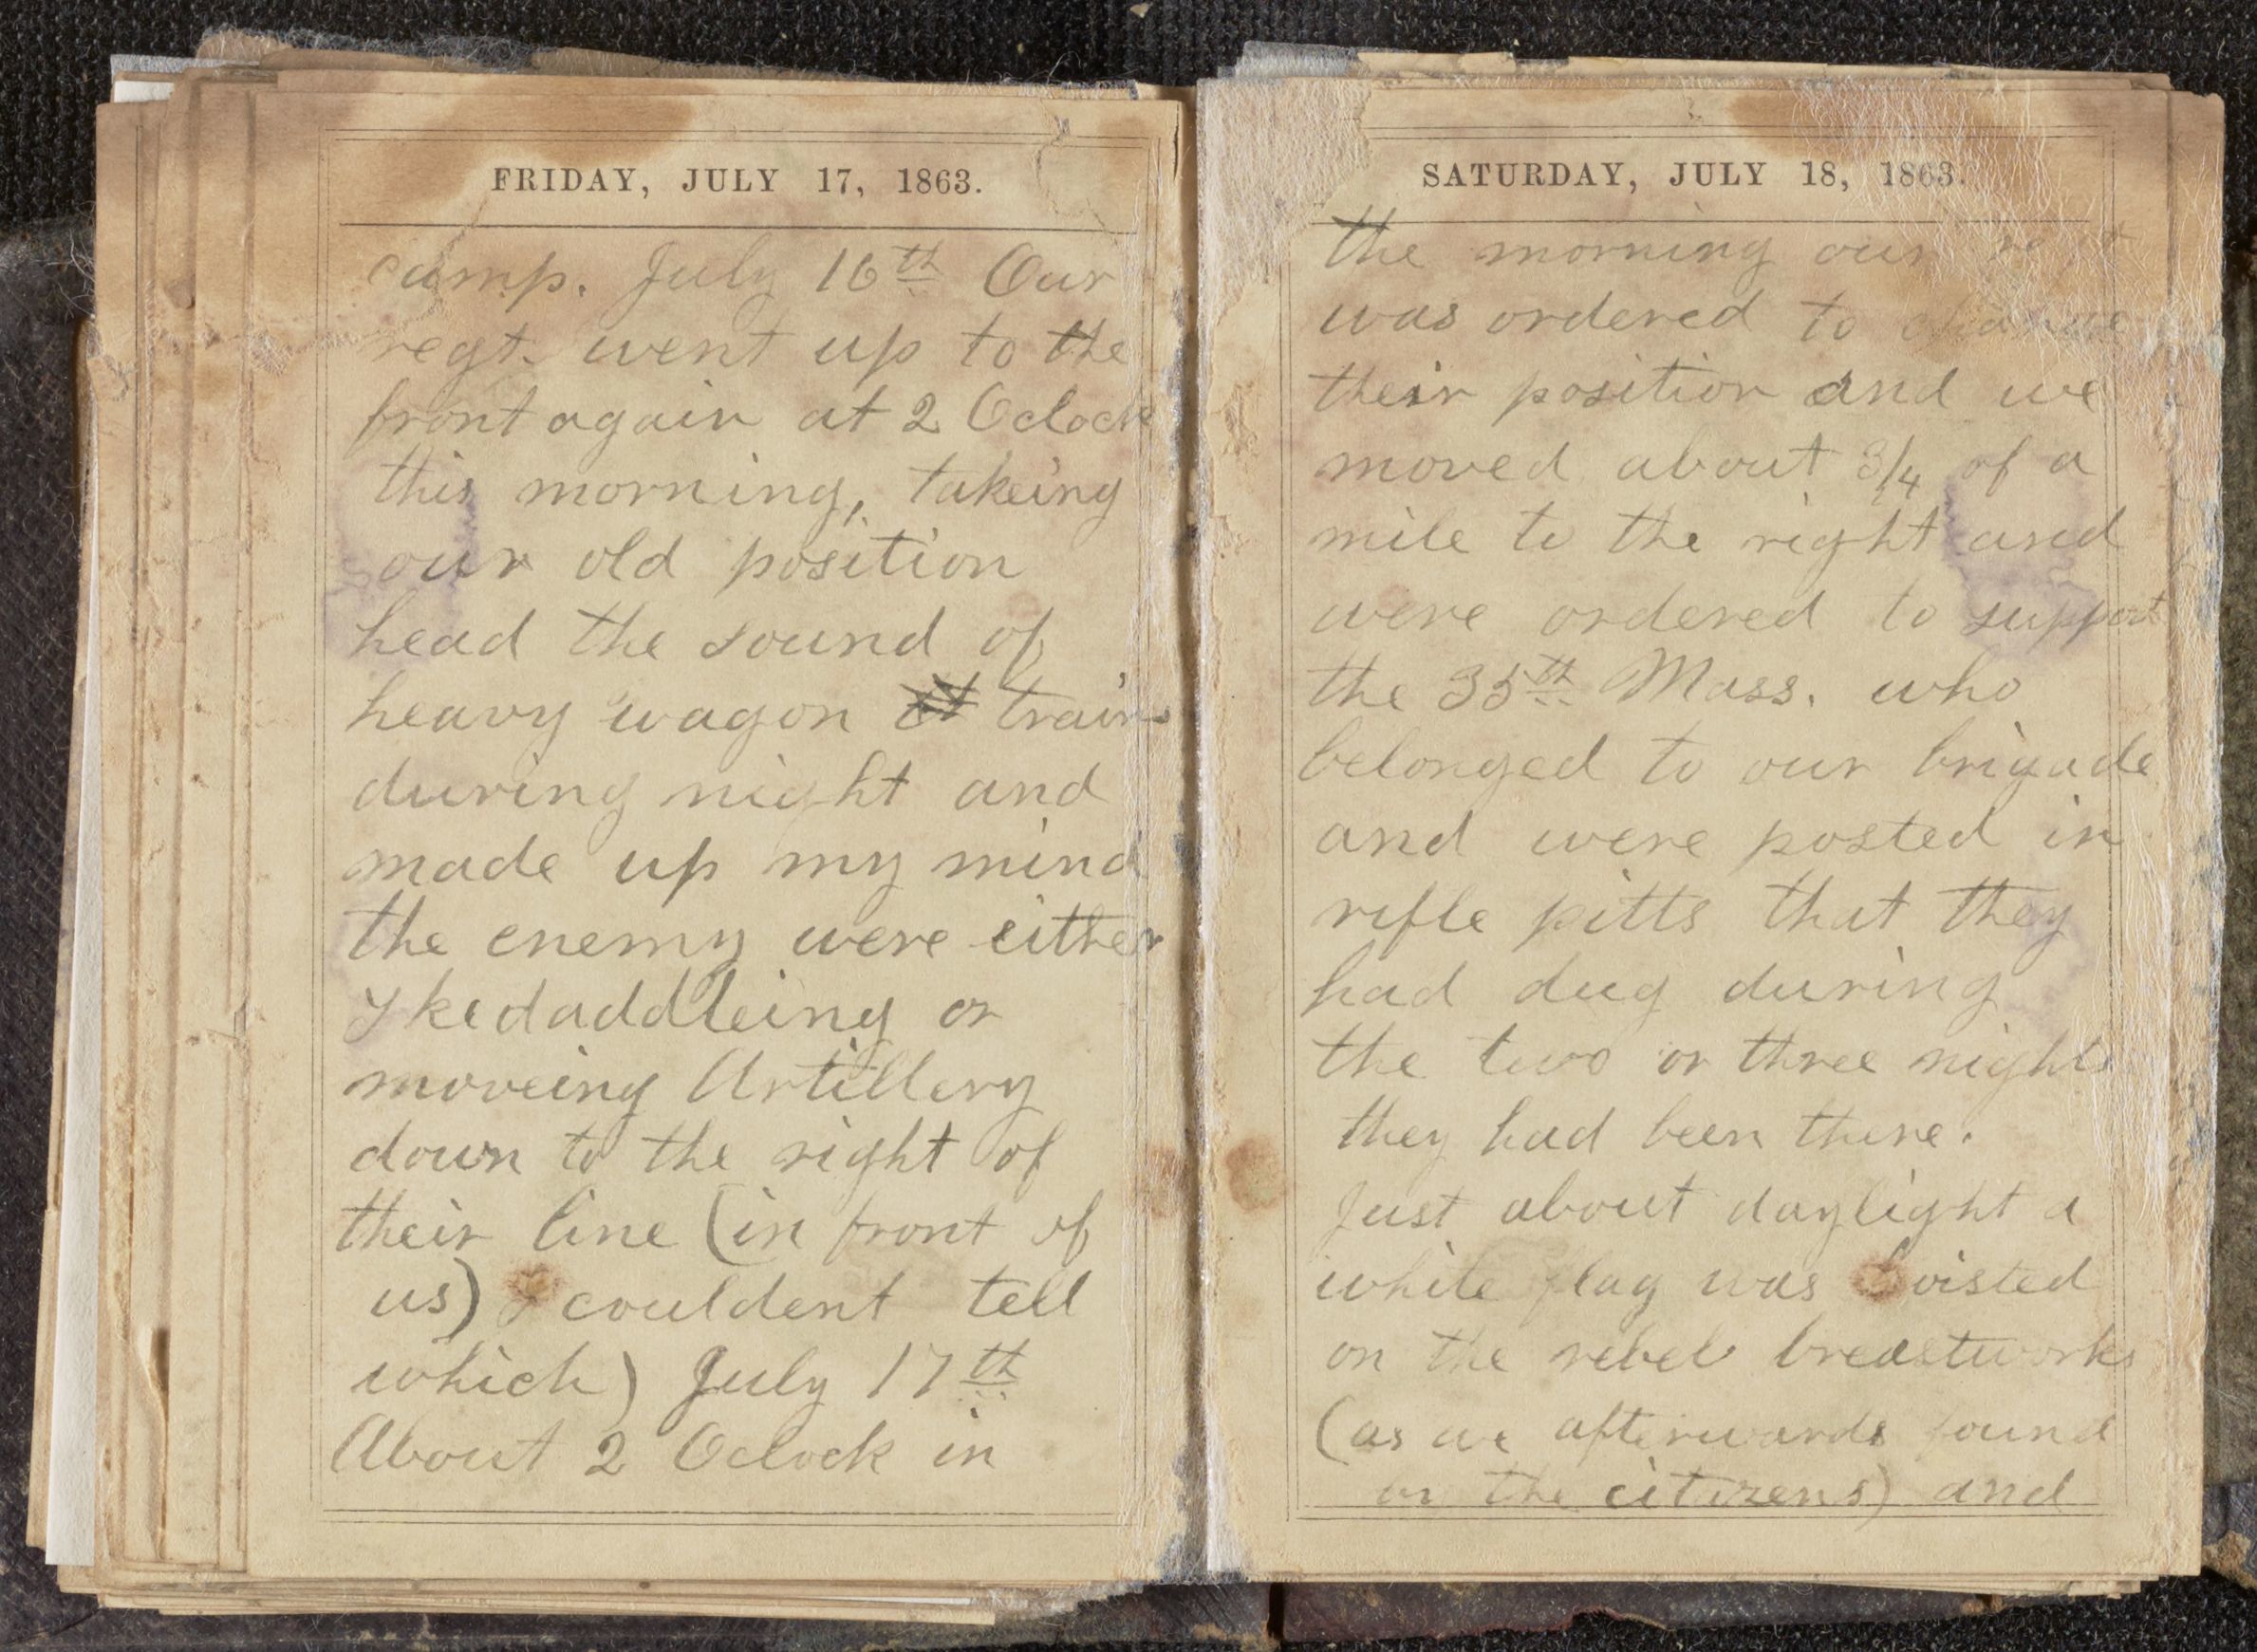 FRIDAY, JULY 17, 1863.
camp. July 16th Our
regt. went up to the
front again at 2 Oclock
this morning, takeing
our old position
head the sound of
heavy wagon trains
during night and
made up my mind
the enemy were either
skedaddleing or
moveing Artillery
down to the right of
their line (in front of
us) couldent tell
which) July 17th
About 2 Oclock in
SATURDAY, JULY 18, 1863.
the morning our
was ordered to change
their position and we
moved about 3/4 of a
mile to the right and
were ordered to support
the 35th Mass. who
belonged to our brigade
and were posted in
rifle pitts that they
had dug during
the two or three nights
they had been there.
Just about daylight a
white flag was hoisted
on the rebel breastworks
(as we afterwards found
by the citizens) and